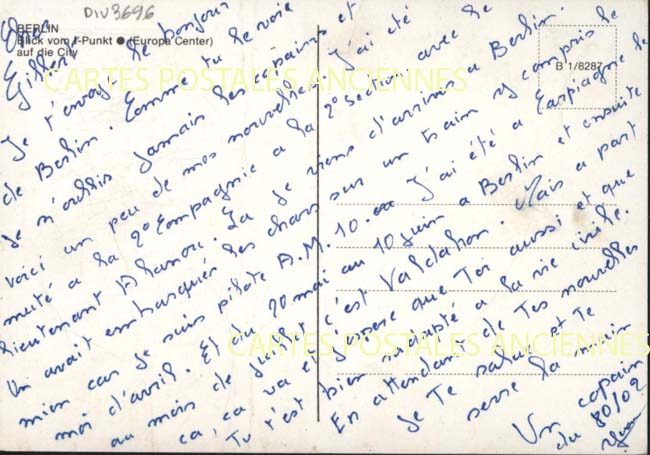 DIV3696
BERLIN
Blick vom I-Punkt ● (Europa Center)
auf die City
B 1/8287
CARTES POSTALES ANCIENNES
CARTES POSTALES ANCIENNES
Cher
Gilbert
Je t'envoie le bonjour
de Berlin. Comme tu le voie
Je n'oublis jamais les copains et
voici un peu de mes nouvelle. J'ai été
muté a la 2° Compagnie a la 2° section avec le
lieutenant Alhanou. La Je viens d'arriver a Berlin
Un avait embarquer les chars sur un train y compris le
mien car Je suis pilote A.M. 10. J'ai été a Carpiagne le
moi d'avril. Et du 20 mai au 10 juin a Berlin et ensuite
au mois de Juillet c'est Valdahon. Mais a part
ca, ca va et J'espère que Toi aussi et que
Tu t'est bien readapté a la vie civile.
En attendant de Tes nouvelles
Je Te salue et Te
serre la main
Un copain
du 80/02